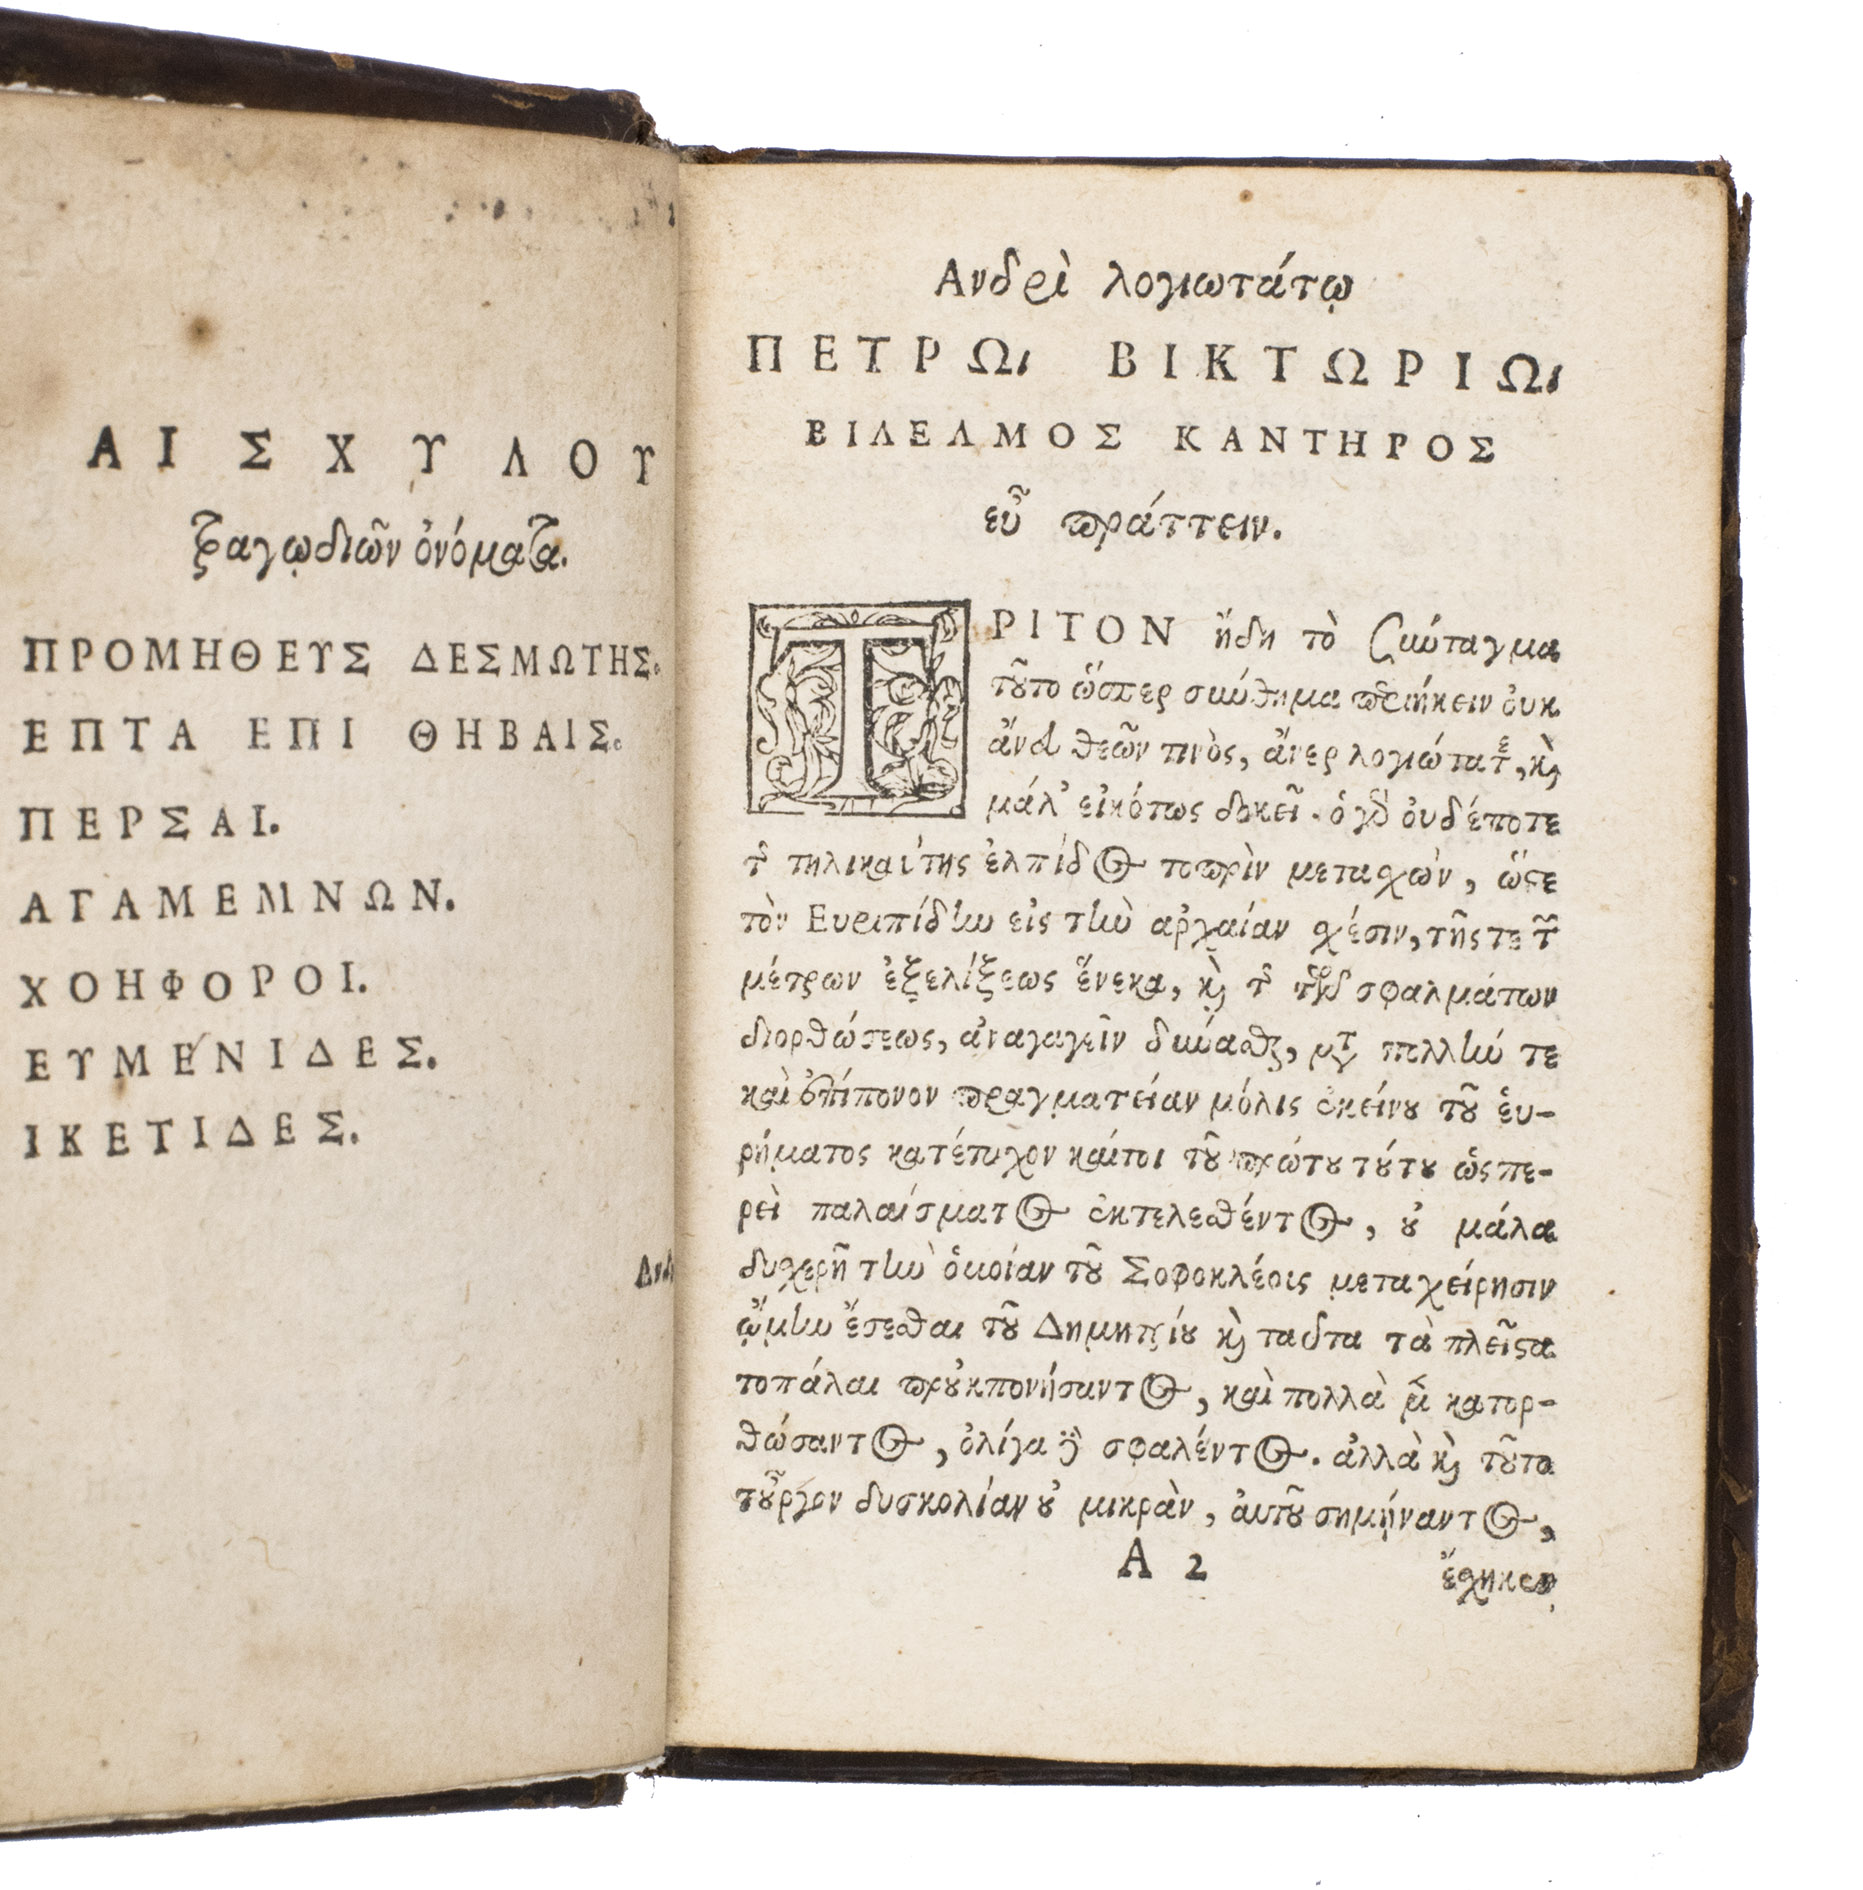 ΑΙΣΧΥΛΟΥ
τραγῳδιῶν ὀνόματα.
ΠΡΟΜΗΘΕΥΣ ΔΕΣΜΩΤΗΣ.
ΕΠΤΑ ΕΠΙ ΘΗΒΑΙΣ.
ΠΕΡΣΑΙ.
ΑΓΑΜΕΜΝΩΝ.
ΧΟΗΦΟΡΟΙ.
ΕΥΜΕΝΙΔΕΣ.
ΙΚΕΤΙΔΕΣ.
Ανδρὶ λογιωτάτῳ
ΠΕΤΡΩι ΒΙΚΤΩΡΙΩι
ΒΙΛΕΛΜΟΣ ΚΑΝΤΗΡΟΣ
εὖ πράττειν.
ΤΡΙΤΟΝ ἤδη τὸ σύνταγμα
τοῦτο ὥσπερ σύνθημα προήκειν ὀυκ
ἄνευ θεῶν τινὸς, ἄνερ λογιώτατε, καὶ
μάλ' εἰκότως δοκεῖ. ὁ γὰρ ὀυδέποτε
τῆς τηλικαύτης ἐλπίδος τοπρὶν μετασχὼν, ὥστε
τὸν Ευριπίδην εἰς τὴν αρχαίαν σχέσιν, τῆς τε τῶν
μέτρων ἐξελίξεως ἕνεκα, καὶ τῆς τῶν σφαλμάτων
διορθώσεως, ἀναγαγεῖν δύνασθαι, μετὰ πολλήν τε
καὶ ἐπίπονον πραγματείαν μόλις ἐκείνου τοῦ ἑυ-
ρήματος κατέτυχον καίτοι τοῦ πρώτου τούτου ὡσπε-
ρεὶ παλαίσματος ἐκτελεσθέντος, οὐ μάλα
δυσχερῆ τὴν ὁμοίαν τοῦ Σοφοκλέους μεταχείρησιν
ᾤμην ἔσεσθαι τοῦ Δημητρίου καὶ ταῦτα τὰ πλεῖστα
τοπάλαι προὐκπονήσαντος, καὶ πολλὰ μὲν κατορ-
θώσαντος, ὀλίγα δὲ σφαλέντος. ἀλλὰ καὶ τοῦτο
τοὖργον δυσκολίαν οὐ μικρὰν, ἀυτοῦ σημήναντος,
Α 2 ἔσχηκεν